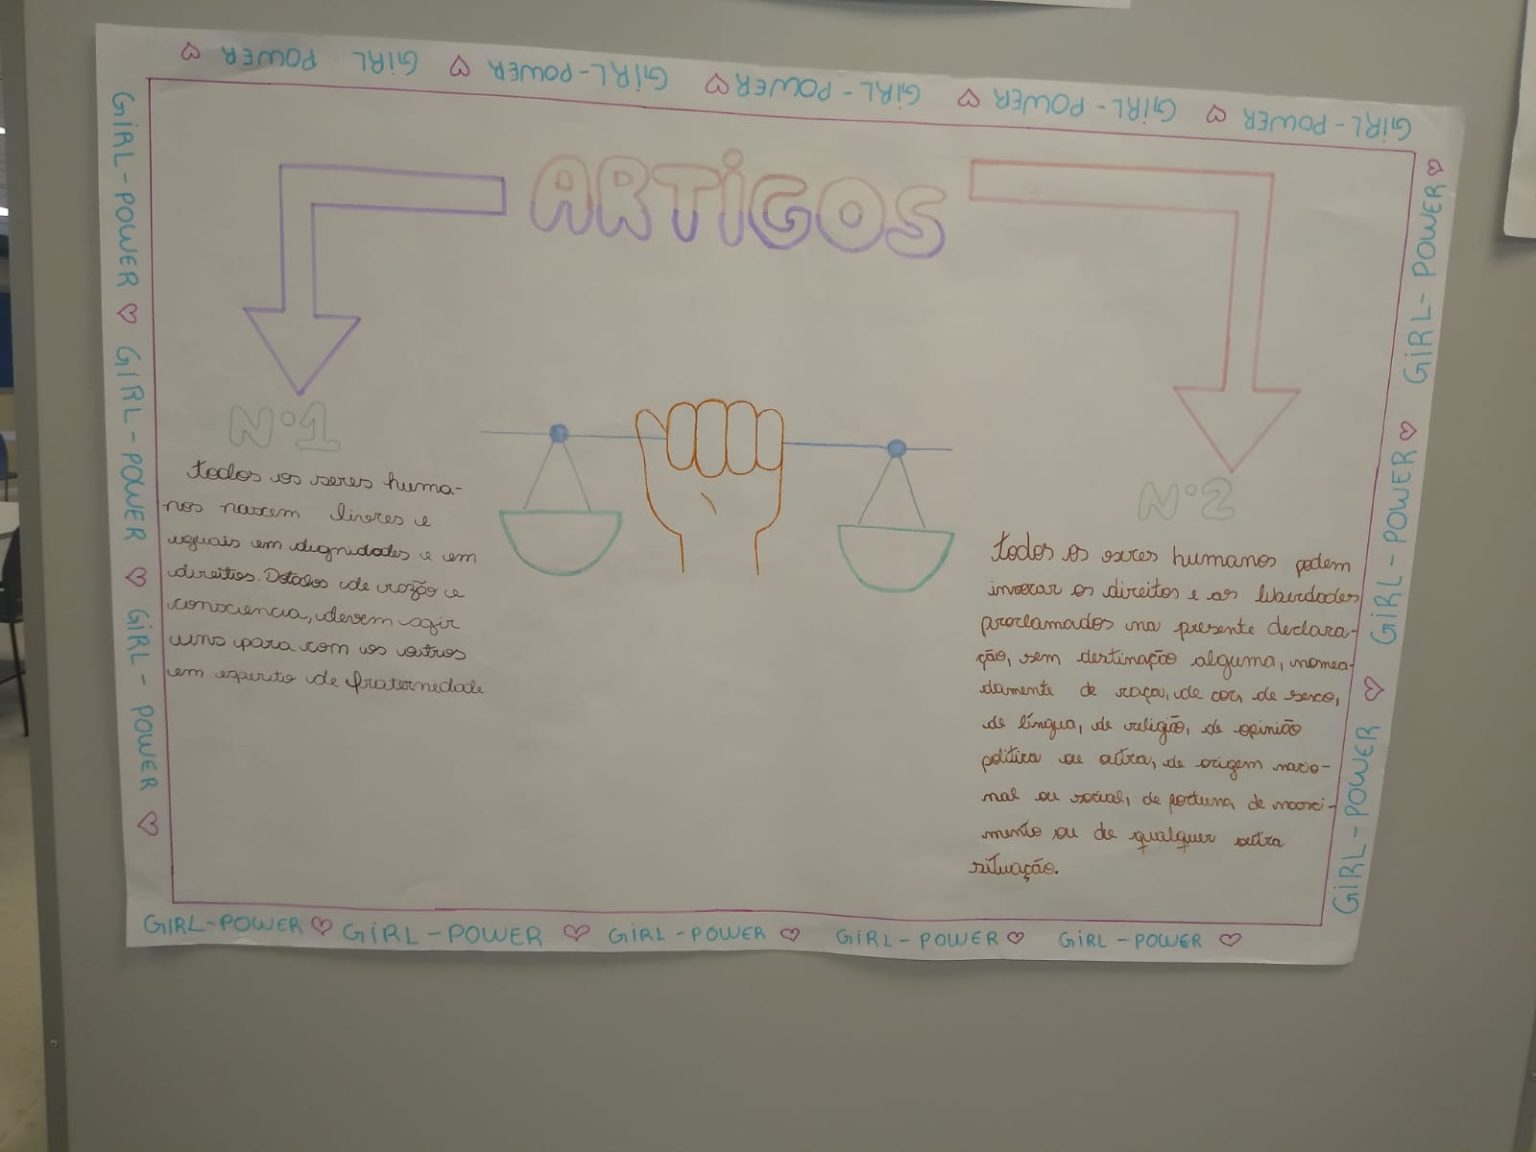 GIRL POWER ♡ GIRL-POWER ♡ GIRL-POWER ♡ GIRL-POWER ♡ GIRL-POWER ♡
GIRL-POWER ♡ GIRL-POWER ♡ GIRL-POWER ♡
ARTIGOS
Nº1
todos os seres huma-
nos nascem livres e
iguais em dignidades e em
direitos. Dotados de razão e
consciencia, devem agir
uns para com os outros
em espirito de fraternedade
Nº2
todos os seres humanos podem
invocar os direitos e as liberdades
proclamados na presente declara-
ção, sem destinação alguma, nomea-
damente de raça, de cor, de sexo,
de língua, de religião, de opinião
politica ou outra, de origem nacio-
nal ou social, de fortuna, de nasci-
mento ou de qualquer outra
situação.
GIRL-POWER ♡ GIRL-POWER ♡ GIRL-POWER ♡
GIRL-POWER ♡ GIRL-POWER ♡ GIRL-POWER ♡ GIRL-POWER ♡ GIRL-POWER ♡